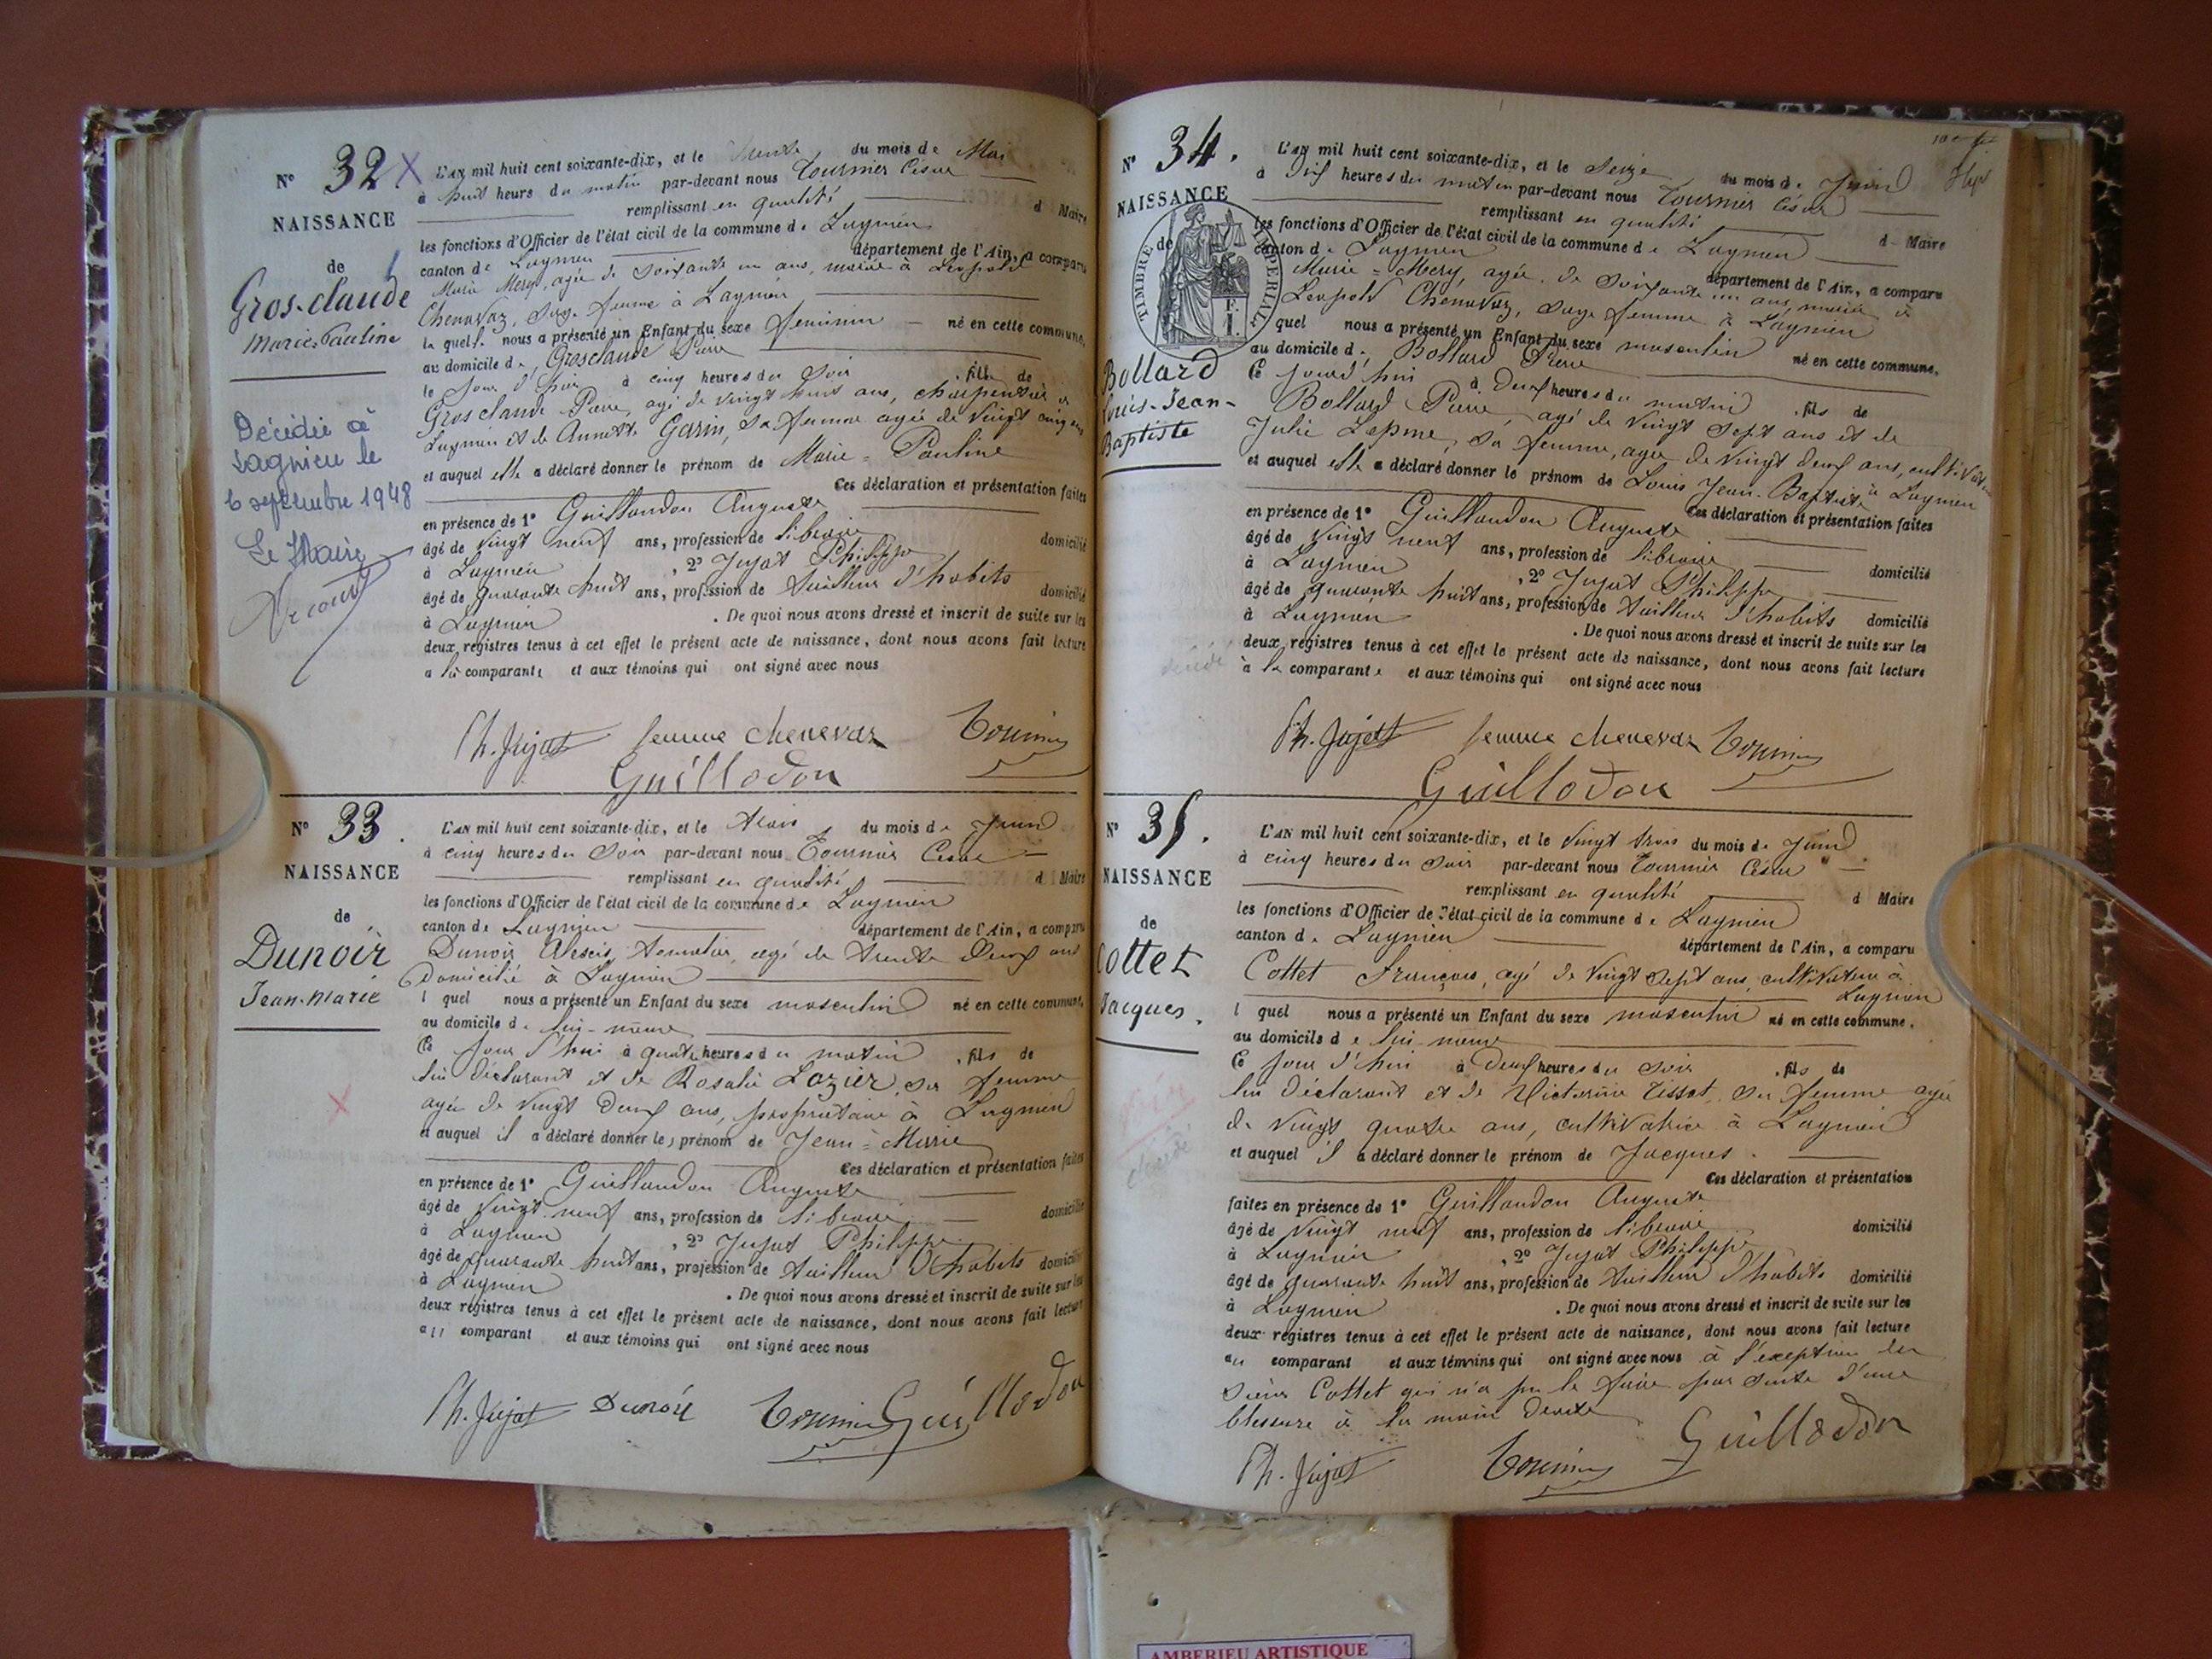 N° 32 X
NAISSANCE
de
Gros-claude
Marie-Pauline
Décédée à
Lagnieu le
6 septembre 1948
Le Maire
L'AN mil huit cent soixante-dix, et le trente du mois de Mai
à huit heures du matin par-devant nous Tournier César
remplissant en qualité d Maire
les fonctions d'Officier de l'état civil de la commune de Lagnieu
canton de Lagnieu département de l'Ain, a comparu
Marie Mery, agée de Soixante un ans, mariée à Léopold
Chenavaz, Sage femme à Lagnieu
laquelle nous a présenté un Enfant du sexe féminin né en cette commune,
au domicile de Grosclaude Pierre
le jour d'hier à cinq heures du Soir , fille de
Gros claude Pierre, agé de vingt huit ans, charpentier à
Lagnieu et de Annette Garin, Sa femme agée de Vingt cinq ans
et auquel elle a déclaré donner le prénom de Marie = Pauline
Ces déclaration et présentation faites
en présence de 1° Guillaudon Auguste
âgé de Vingt neuf ans, profession de libraire domicilié
à Lagnieu , 2° Jujat Philippe
âgé de quarante huit ans, profession de tailleur d'habits domicilié
à Lagnieu . De quoi nous avons dressé et inscrit de suite sur les
deux registres tenus à cet effet le présent acte de naissance, dont nous avons fait lecture
a la comparante et aux témoins qui ont signé avec nous
Ph. Jujat femme chenevaz Tournier
Guillodon
N° 33.
NAISSANCE
de
Dunoir
Jean-Marie
X
L'AN mil huit cent soixante-dix, et le trois du mois de Juin
à cinq heures du Soir par-devant nous Tournier César
remplissant en qualité d Maire
les fonctions d'Officier de l'état civil de la commune de Lagnieu
canton de Lagnieu département de l'Ain, a comparu
Dunoir Alexis, agé de trente deux ans
Domicilié à Lagnieu
l quel nous a présenté un Enfant du sexe masculin né en cette commune,
au domicile de lui-même
Ce jour d'hui à quatre heures du matin , fils de
lui déclarant et de Rosalie Lozier, sa femme
agée de Vingt deux ans, propriétaire à Lagnieu
et auquel il a déclaré donner les prénom de Jean = Marie
Ces déclaration et présentation faites
en présence de 1° Guillaudon Auguste
âgé de Vingt neuf ans, profession de libraire domicilié
à Lagnieu , 2° Jujat Philippe
âgé de quarante huit ans, profession de tailleur d'habits domicilié
à Lagnieu . De quoi nous avons dressé et inscrit de suite sur les
deux registres tenus à cet effet le présent acte de naissance, dont nous avons fait lecture
au comparant et aux témoins qui ont signé avec nous
Ph. Jujat Dunoir Tournier Guillodon
N° 34.
NAISSANCE
de
TIMBRE IMPERIAL
Bollard
Louis-Jean-
Baptiste
décédé
L'AN mil huit cent soixante-dix, et le Seize du mois de Juin
à Dix heures du matin par-devant nous Tournier César
remplissant en qualité d Maire
les fonctions d'Officier de l'état civil de la commune de Lagnieu
canton de Lagnieu département de l'Ain, a comparu
Marie = Mery, agée de Soixante un ans, mariée à
Léopold Chenavaz, Sage femme à Lagnieu
quel nous a présenté un Enfant du sexe masculin né en cette commune,
au domicile d. Bollard Pierre
Ce jourd'hui à Deux heures du matin , fils de
Bollard Pierre, agé de Vingt Sept ans et de
Julie Lepine, Sa femme, agée de Vingt deux ans, cultivateurs
à Lagnieu
et auquel elle a déclaré donner le prénom de Louis Jean-Baptiste
Ces déclaration et présentation faites
en présence de 1° Guillaudon Auguste
âgé de Vingt neuf ans, profession de libraire
à Lagnieu , 2° Jujat Philippe domicilié
âgé de quarante huit ans, profession de tailleur d'habits domicilié
à Lagnieu . De quoi nous avons dressé et inscrit de suite sur les
deux registres tenus à cet effet le présent acte de naissance, dont nous avons fait lecture
à la comparante et aux témoins qui ont signé avec nous
Ph. Jujat femme chenevaz Tournier
Guillodon
N° 35.
NAISSANCE
de
Cottet
Jacques.
décédé
L'AN mil huit cent soixante-dix, et le Vingt trois du mois de Juin
à cinq heures du Soir par-devant nous Tournier César
remplissant en qualité d Maire
les fonctions d'Officier de l'état civil de la commune de Lagnieu
canton de Lagnieu département de l'Ain, a comparu
Cottet François, agé de Vingt Sept ans, cultivateur à
Lagnieu
l quel nous a présenté un Enfant du sexe masculin né en cette commune,
au domicile de lui-même
Ce jour d'hui à Deux heures du Soir , fils de
lui déclarant et de Victorine Tissot, sa femme agée
de Vingt quatre ans, cultivatrice à Lagnieu
et auquel il a déclaré donner le prénom de Jacques.
Ces déclaration et présentation
faites en présence de 1° Guillaudon Auguste
âgé de Vingt neuf ans, profession de libraire domicilié
à Lagnieu , 2° Jujat Philippe
âgé de quarante huit ans, profession de tailleur d'habits domicilié
à Lagnieu . De quoi nous avons dressé et inscrit de suite sur les
deux registres tenus à cet effet le présent acte de naissance, dont nous avons fait lecture
au comparant et aux témoins qui ont signé avec nous à l'exception du
Sieur Cottet qui n'a pu le faire par suite d'une
blessure à la main droite
Guillodon
Ph. Jujat Tournier
AMBERIEU ARTISTIQUE